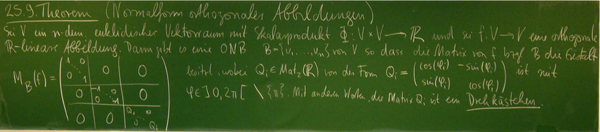 25.9. Theorem (Normalform orthogonaler Abbildungen)
Sei V ein n-dim. euklidischer Vektorraum mit Skalarprodukt Φ: V × V → ℝ und sei f: V → V eine orthogonale
ℝ-lineare Abbildung. Dann gibt es eine ONB B = {v₁, ..., vₙ} von V so dass die Matrix von f bzgl B die Gestalt
M_B(f) = ( 1 0 0 1 0 0 0 -1 0 0 -1 0 0 0 Q₁ 0 0 Qₗ ) besitzt, wobei Qᵢ ∈ Mat₂(ℝ) von der Form Qᵢ = ( cos(φᵢ) -sin(φᵢ) sin(φᵢ) cos(φᵢ) ) ist mit
φ ∈ ]0, 2π[ \ {π}. Mit anderen Worten, der Matrix Qᵢ ist ein Drehkästchen.